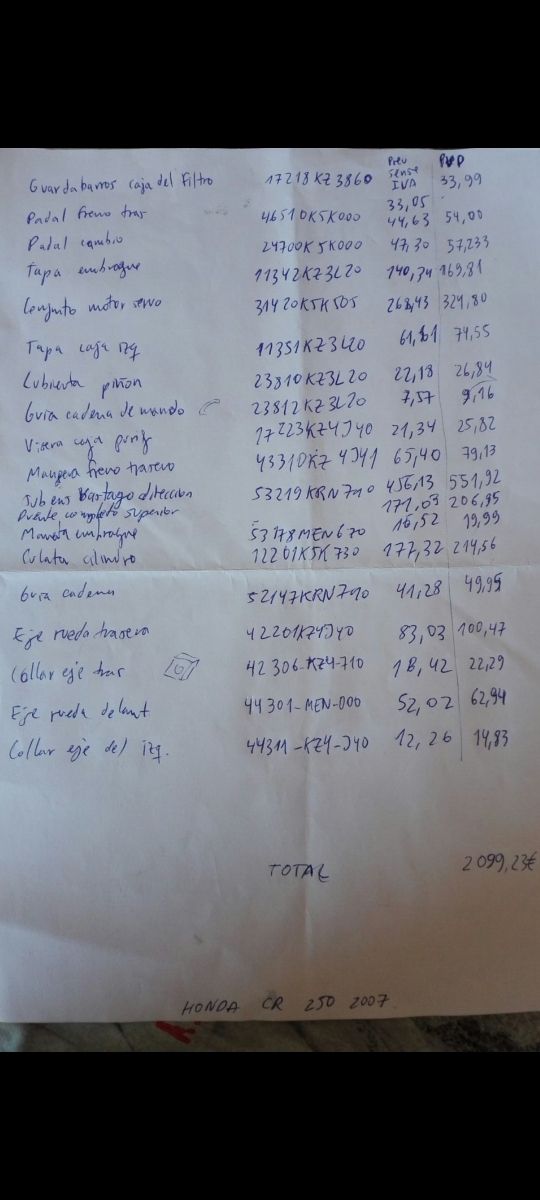 Preu sense IVA PVP
Guardabarros caja del Filtro 17218KZ3860 33,05 33,99
Padal freno tras 46510K5K000 44,63 54,00
Padal cambio 24700K5K000 47,30 57,233
Tapa embrague 11342KZ3L20 140,34 169,81
Conjunto motor servo 31420K5K505 268,43 324,80
Tapa caja izq 11351KZ3L20 61,61 74,55
Cubierta piñon 23810KZ3L20 22,18 26,84
Guia cadena de mando 23812KZ3L20 7,57 9,16
Visera caja purif 17223KZ4J40 21,34 25,82
Manguera freno trasero 43310KZ4J41 65,40 79,13
Sub ens Vastago direccion 53219KRN710 456,13 551,92
Puente completo superior 171,03 206,95
Maneta embrague 53178MEN670 16,52 19,99
Culata cilindro 12201K5K730 177,32 214,56
Guia cadena 52147KRN710 41,28 49,95
Eje rueda trasera 42201KZ4J40 83,03 100,47
Collar eje tras 42306-KZ4-710 18,42 22,29
Eje rueda delant 44301-MEN-000 52,02 62,94
Collar eje del izq. 44311-KZ4-J40 12,26 14,83
TOTAL 2099,23€
HONDA CR 250 2007